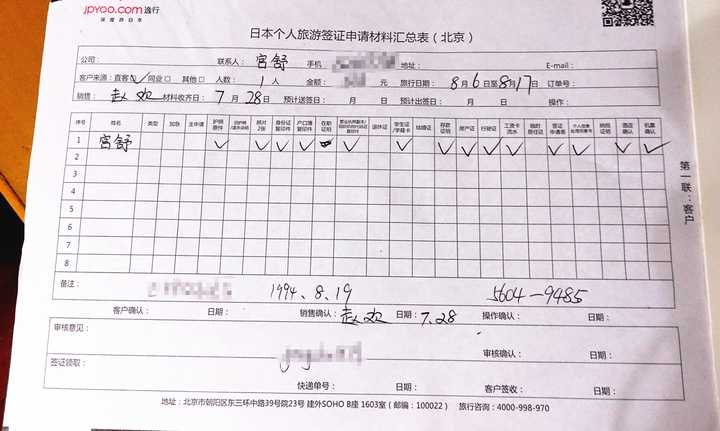 JPYOO.COM 逸行
深度游日本
日本个人旅游签证申请材料汇总表（北京）
公司： 联系人：宫舒 手机： 地址： E-mail：
客户来源：直客☑ 同业□ 其他□ 人数：1人 金额： 元 旅行日期：8月6日至8月17日 订单号：
销售：赵欢 材料收齐日：7月28日 预计送签日： 月 日 预计出签日： 月 日 操作：
序号 姓名 类型 加急 主申请 护照原件 照片2张 身份证复印件 户口簿复印件 在职证明 退休证 学生证/学籍卡 结婚证 存款证明 房产证 行驶证 工资卡流水 暂住居住证 签证申请表 纳税证明 酒店确认 机票确认
1 宫舒 ✓ ✓ ✓ ✓ ✓ ✓ ✓ ✓ ✓ ✓ ✓ ✓ ✓ ✓ ✓
2
3
4
5
6
7
8.
第一联：客户
备注： 1994.8.19 5604-9485
客户确认： 日期： 销售确认：赵欢 日期：7.28 操作确认： 日期：
审核意见：
审核确认： 日期：
签证领取：
快递单号： 日期： 客户签收： 日期：
地址：北京市朝阳区东三环中路39号院23号 建外SOHO B座 1603室（邮编：100022） 旅行咨询：4000-998-970